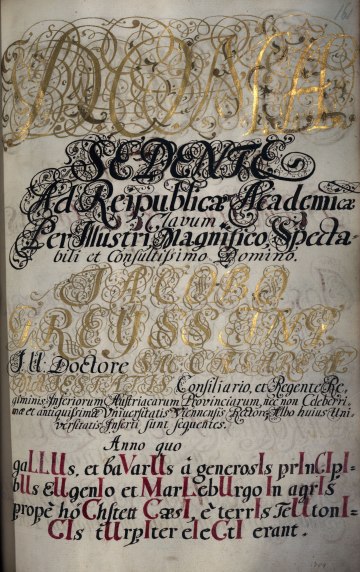 161
NOMINA
SEDENTE
Ad Reipublicæ Academicæ
Clavum
Per Illustri, Magnifico, Specta-
bili et Consultissimo Domino.
JACOBO
GREUSSING
J.U. Doctore SAC: CÆSAREÆ
MAJESTATIS Consiliario, et Regente Re-
giminis Inferiorum Austriacarum Provinciarum, nec non Celeberri-
mæ et antiquissimæ Universitatis Viennensis Rectore, Albo huius Uni-
versitatis Inserti sunt sequentes.
Anno quo
gaLLUs, et baVarUs à generosIs prInCIpI-
bUs EUgenIo et MarLebUrgo In agrIs
propè hôChstett CæsI, è terrIs TeUtonI-
CIs tUrpIter eIeCtI erant.